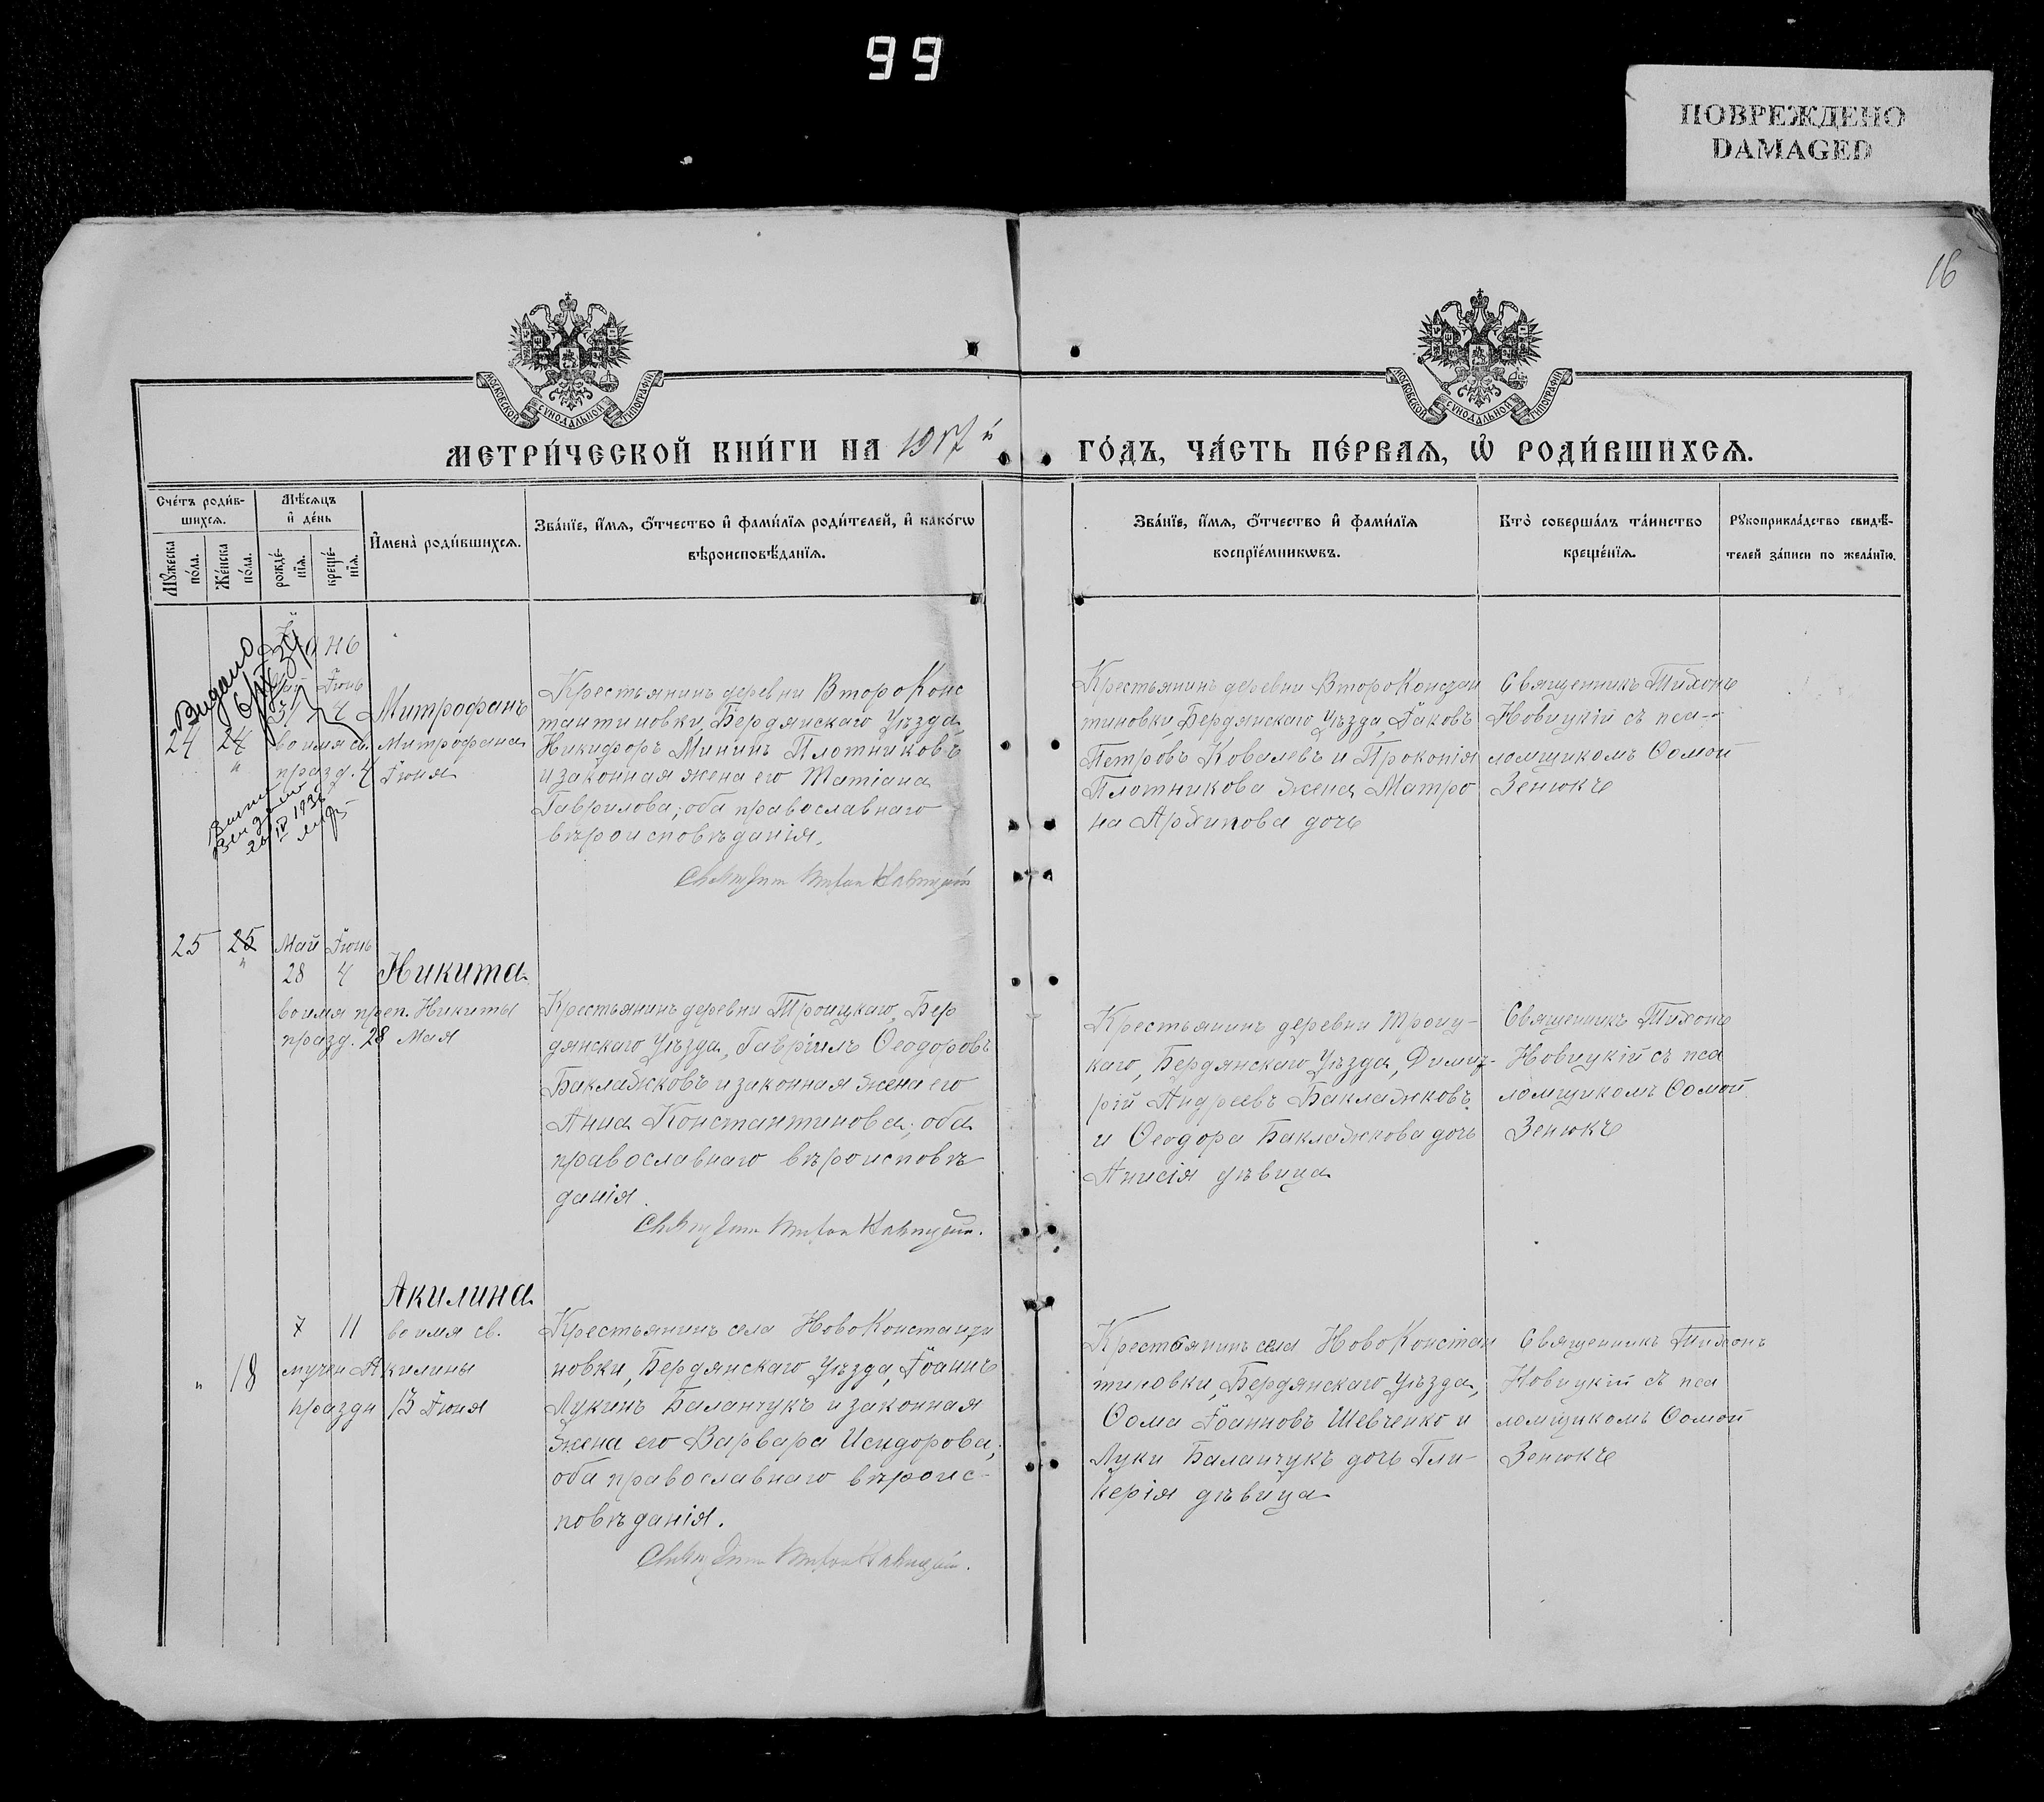 99
ПОВРЕЖДЕНО
DAMAGED
16
МОСКОВСКОЙ СѴНОДАЛЬНОЙ ТИПОГРАФІИ
МОСКОВСКОЙ СѴНОДАЛЬНОЙ ТИПОГРАФІИ
МЕТРИ́ЧЕСКОЙ КНИ́ГИ НА 1917 й ГО́ДЪ, ЧА́СТЬ ПЕ́РВАѦ, Ѡ҆ РОДИ́ВШИХСѦ.
Сче́тъ роди́в-
шихсѧ.
Мꙋ́жеска по́ла.
Же́нска по́ла.
Мѣ́сѧцъ
и҆ де́нь
рожде́-
нїѧ.
креще́-
нїѧ.
И҆мена̀ роди́вшихсѧ.
Зва́нїе, и҆́мѧ, ѻ҆́тчество и҆ фами́лїѧ роди́телей, и҆ како́гѡ
вѣроисповѣ́данїѧ.
Зва́нїе, и҆́мѧ, ѻ҆́тчество и҆ фами́лїѧ
воспрїе́мникѡвъ.
Кто̀ соверша́лъ та́инство
креще́нїѧ.
Рꙋкоприкла́дство свидѣ́-
телей за́писи по жела́нїю.
24 24 31 Іюнь 4 Митрофанъ
во имя св. Митрофана
празд. 4 Іюня
Крестьянинъ деревни ВтороКонс
тантиновки, Бердянскаго Уѣзда,
Никифоръ Мининъ Плотниковъ
и законная жена его Татіана
Гаврилова; оба православнаго
вѣроисповѣданія.
Крестьянинъ деревни ВтороКонстан
тиновки, Бердянскаго Уѣзда, Іаковъ
Петровъ Ковалевъ и Прокопія
Плотникова жена Матро
на Архипова дочь
Священникъ Тихонъ
Новицкій съ пса-
ломщикомъ Ѳомой
Зенюкъ
Священник Тихон Новицкій
25 25 Май 28 Іюнь 4 Никита
во имя преп. Никиты
празд. 28 Мая
Крестьянинъ деревни Троицкаго, Бер
дянскаго Уѣзда, Гавріилъ Ѳеодоровъ
Баклажковъ и законная жена его
Анна Константинова; оба
православнаго вѣроисповѣ
данія.
Крестьянинъ деревни Троиц-
каго, Бердянскаго Уѣзда, Димит-
рій Андреевъ Баклажковъ
и Ѳеодора Баклажкова дочь
Анисія дѣвица
Священникъ Тихонъ
Новицкій съ пса
ломщикомъ Ѳомой
Зенюкъ
Священник Тихон Новицкій.
Акилина
" 18 7 11 во имя св.
мучен. Акилины
праздн 13 Іюня
Крестьянинъ села НовоКонстанти
новки, Бердянскаго Уѣзда, Іоаннъ
Лукинъ Баланчукъ и законная
жена его Варвара Исидорова;
оба православнаго вѣроис-
повѣданія.
Крестьянинъ села НовоКонстан
тиновки, Бердянскаго Уѣзда,
Ѳома Іоанновъ Шевченко и
Луки Баланчукъ дочь Гли-
керія дѣвица
Священникъ Тихонъ
Новицкій съ пса
ломщикомъ Ѳомой
Зенюкъ
Священник Тихон Новицкій.